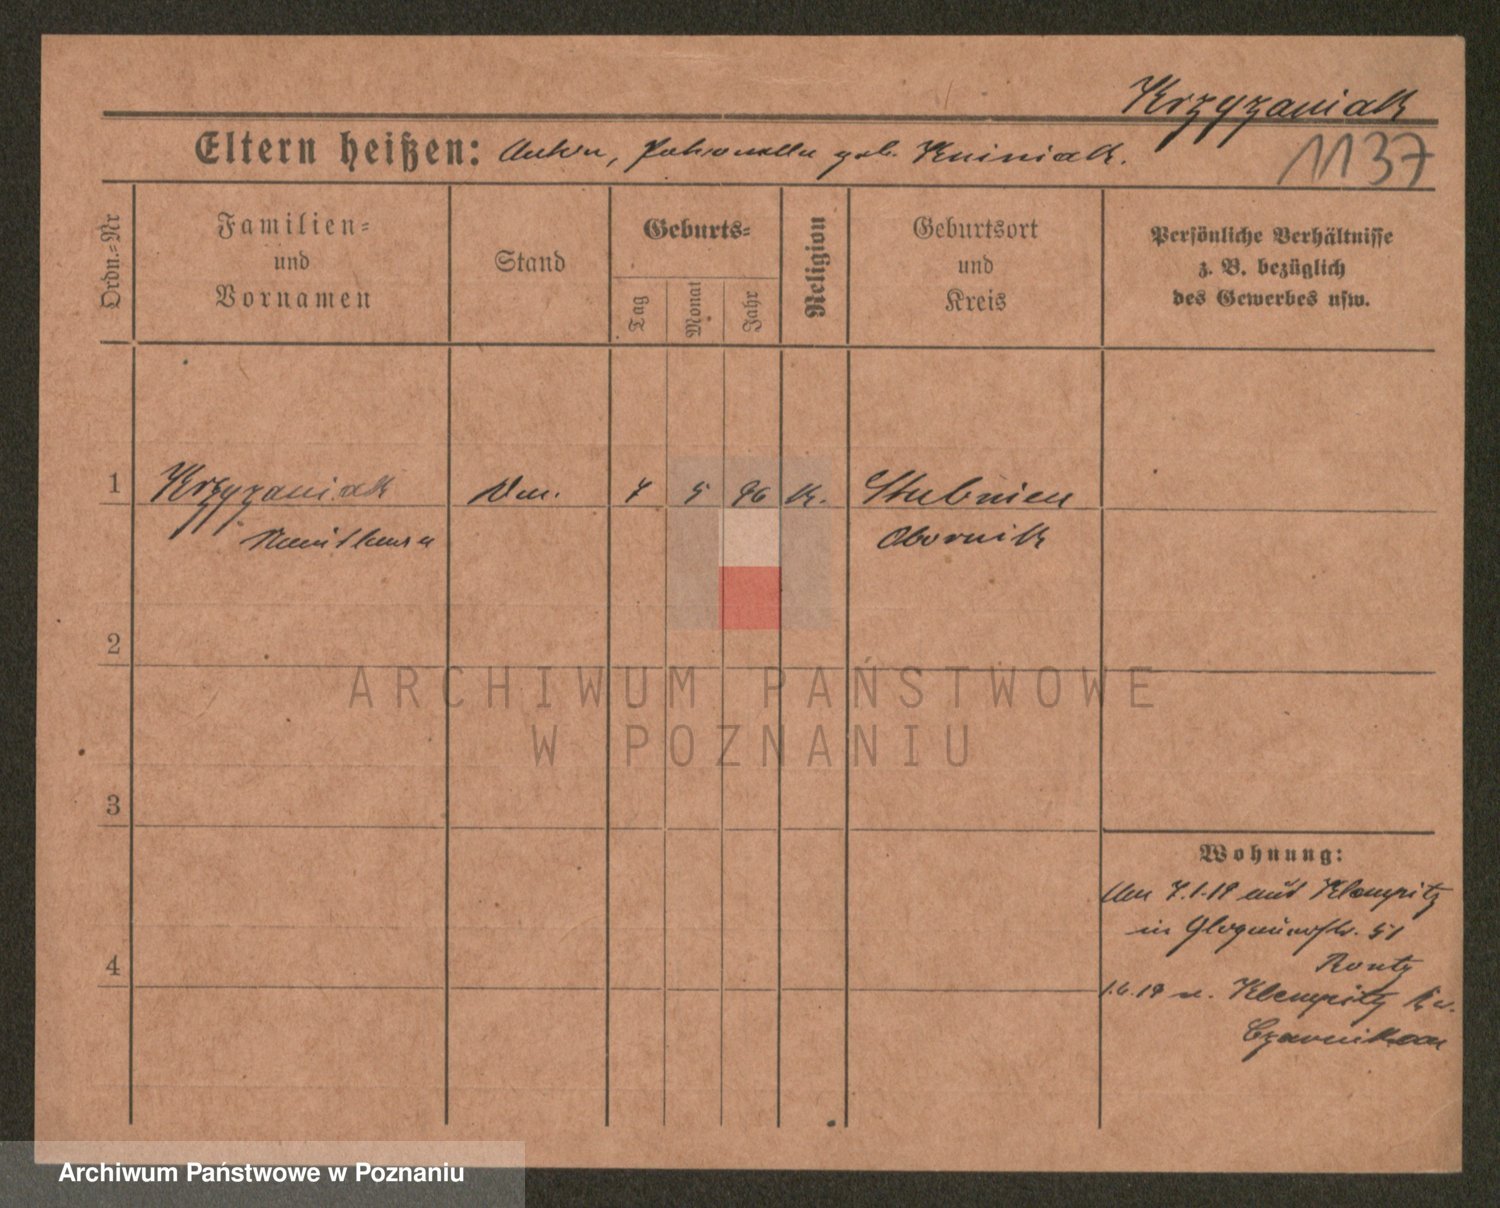 Krzyzaniak
Eltern heißen: Anton, Petronella geb. Kuiniak.
1137
Ordn.-Nr
Familien-
und
Vornamen
Stand
Geburts-
Tag
Monat
Jahr
Religion
Geburtsort
und
Kreis
Persönliche Verhältnisse
z. B. bezüglich
des Gewerbes usw.
1 Krzyzaniak 7 5 96 k. Stubnien
Obornik
2
3
4
Wohnung:
Am 7.1.19 aus Klempitz
in Glogauerstr. 51
1.6.19 n. Klempitz Kr.
Czarnikau
ARCHIWUM PAŃSTWOWE
W POZNANIU
Archiwum Państwowe w Poznaniu